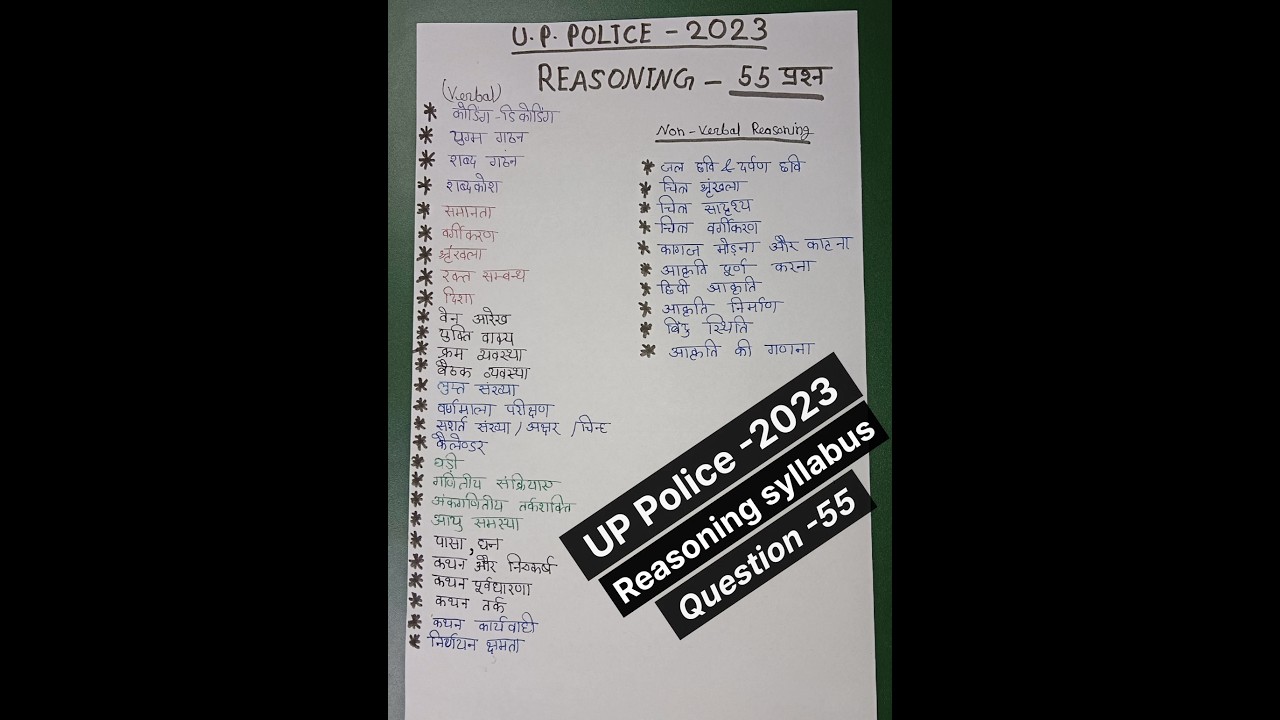 U.P. POLICE - 2023
REASONING - 55 प्रश्न
(Verbal)
* कोडिंग-डिकोडिंग
* युग्म गठन
* शब्द गठन
* शब्दकोश
* समानता
* वर्गीकरण
* श्रृंखला
* रक्त सम्बन्ध
* दिशा
* वेन आरेख
* युक्ति वाक्य
* क्रम व्यवस्था
* बैठक व्यवस्था
* लुप्त संख्या
* वर्णमाला परीक्षण
* सशर्त संख्या / अक्षर / चिन्ह
* कैलेण्डर
* घड़ी
* गणितीय संक्रियाएं
* अंकगणितीय तर्कशक्ति
* आयु समस्या
* पासा, घन
* कथन और निष्कर्ष
* कथन पूर्वधारणा
* कथन तर्क
* कथन कार्यवाही
* निर्णयन क्षमता
Non-Verbal Reasoning
* जल छवि & दर्पण छवि
* चित्र श्रृंखला
* चित्र सादृश्य
* चित्र वर्गीकरण
* कागज मोड़ना और काटना
* आकृति पूर्ण करना
* छिपी आकृति
* आकृति निर्माण
* बिंदु स्थिति
* आकृति की गणना
UP Police -2023
Reasoning syllabus
Question -55